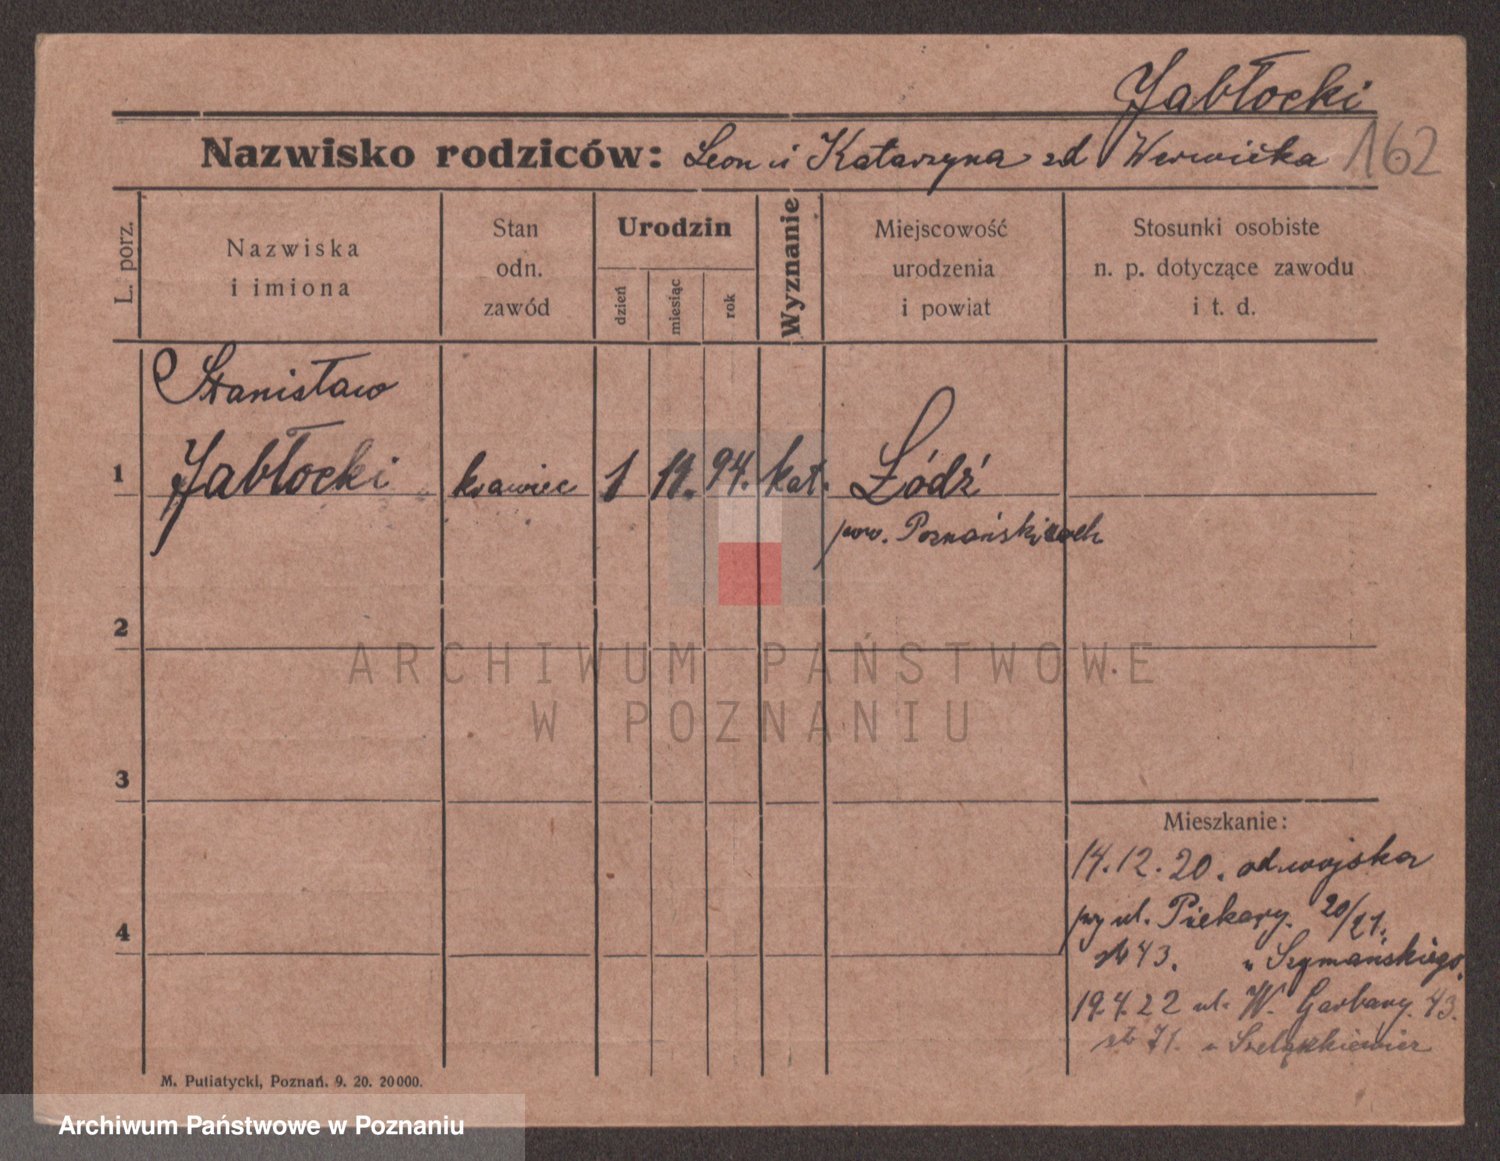 Jabłocki
Nazwisko rodziców: Leon i Katarzyna zd Werwicka
162
L. porz.
Nazwiska
i imiona
Stan
odn.
zawód
Urodzin
dzień
miesiąc
rok
Wyznanie
Miejscowość
urodzenia
i powiat
Stosunki osobiste
n. p. dotyczące zawodu
i t. d.
Stanisław
1 Jabłocki krawiec 1 11. 94. kat. Łódź
pow.
2
ARCHIWUM PAŃSTWOWE
W POZNANIU
3
4
Mieszkanie:
14.12.20. od wojska
ul. Piekary. 20/21.
43. " Szymańskiego.
19.4.22 ul. W. Garbary. 43.
71.
M. Putiatycki, Poznań. 9. 20. 20000.
Archiwum Państwowe w Poznaniu